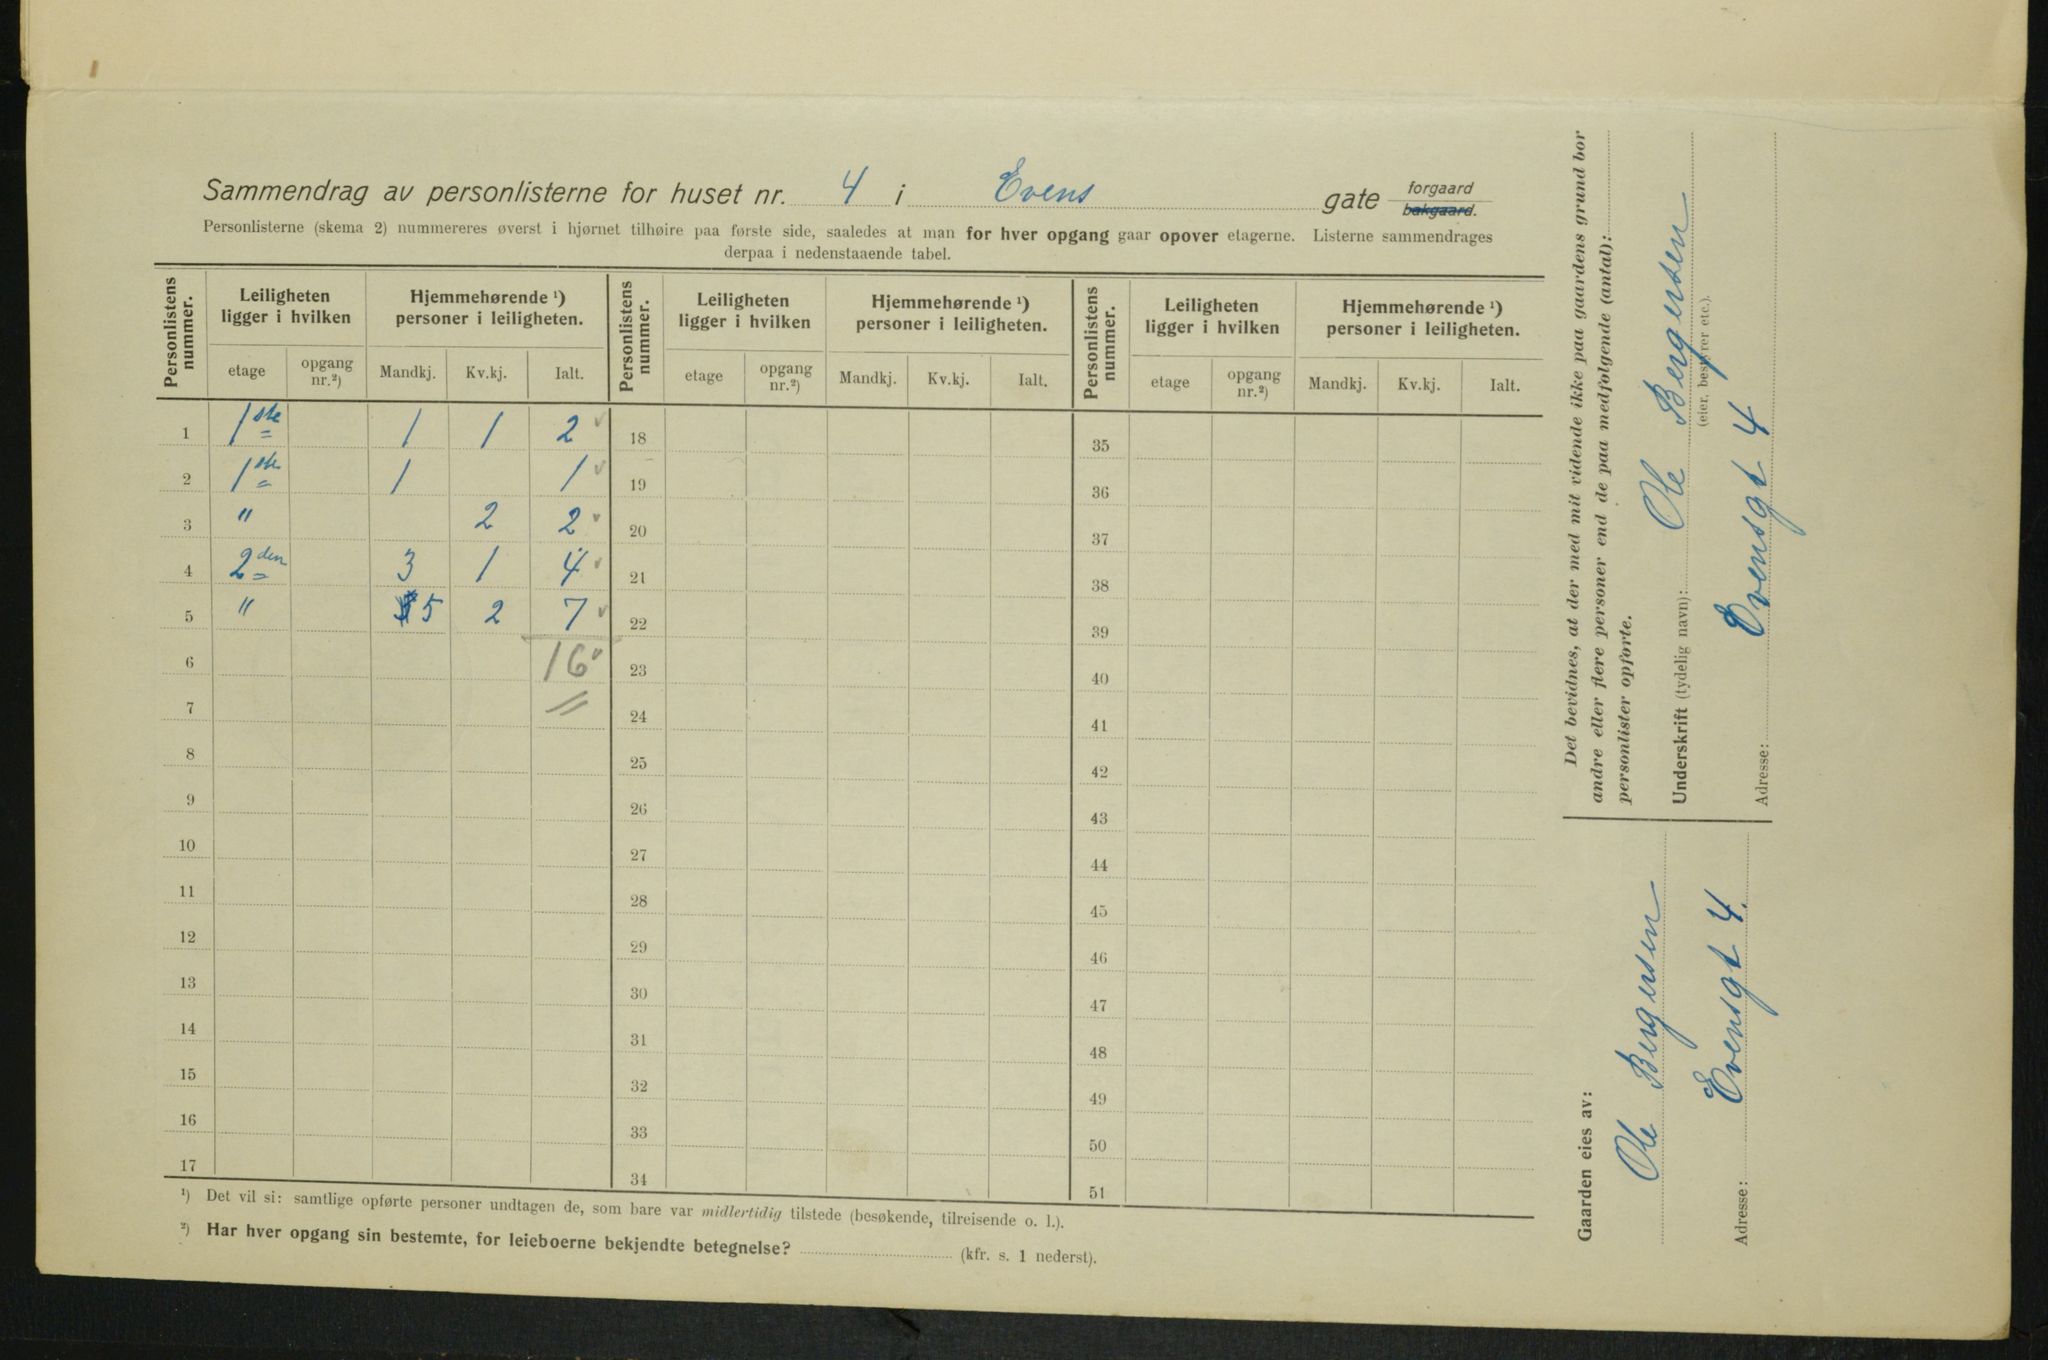 Sammendrag av personlisterne for huset nr. 4 i Evens gate forgaard bakgaard.
Personlisterne (skema 2) nummereres øverst i hjørnet tilhøire paa første side, saaledes at man for hver opgang gaar opover etagerne. Listerne sammendrages
derpaa i nedenstaaende tabel.
Personlistens nummer. Leiligheten ligger i hvilken Hjemmehørende ¹) personer i leiligheten. Personlistens nummer. Leiligheten ligger i hvilken Hjemmehørende ¹) personer i leiligheten. Personlistens nummer. Leiligheten ligger i hvilken Hjemmehørende ¹) personer i leiligheten.
etage opgang nr.²) Mandkj. Kv.kj. Ialt. etage opgang nr.²) Mandkj. Kv.kj. Ialt. etage opgang nr.²) Mandkj. Kv.kj. Ialt.
1 1ste 1 1 2 18 35
2 1ste 1 1 19 36
3 " 2 2 20 37
4 2den 3 1 4 21 38
5 " 5 2 7 22 39
6 16 23 40
7 24 41
8 25 42
9 26 43
10 27 44
11 28 45
12 29 46
13 30 47
14 31 48
15 32 49
16 33 50
17 34 51
¹) Det vil si: samtlige opførte personer undtagen de, som bare var midlertidig tilstede (besøkende, tilreisende o. l.).
²) Har hver opgang sin bestemte, for leieboerne bekjendte betegnelse? (kfr. s. 1 nederst).
Det bevidnes, at der med mit vidende ikke paa gaardens grund bor
andre eller flere personer end de paa medfølgende (antal):
personlister opførte.
Underskrift (tydelig navn): Ole Bergersen
(eier, bestyrer etc.).
Adresse: Evensgt 4
Gaarden eies av:
Ole Bergersen
Adresse: Evensgt 4.